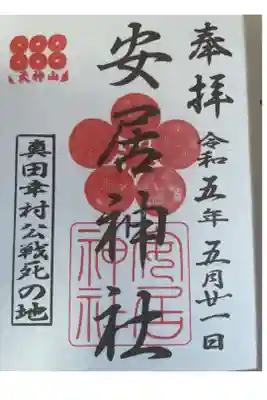 奉拝
令和五年五月廿一日
安居神社
安居神社
真田幸村公戦死の地
天神山